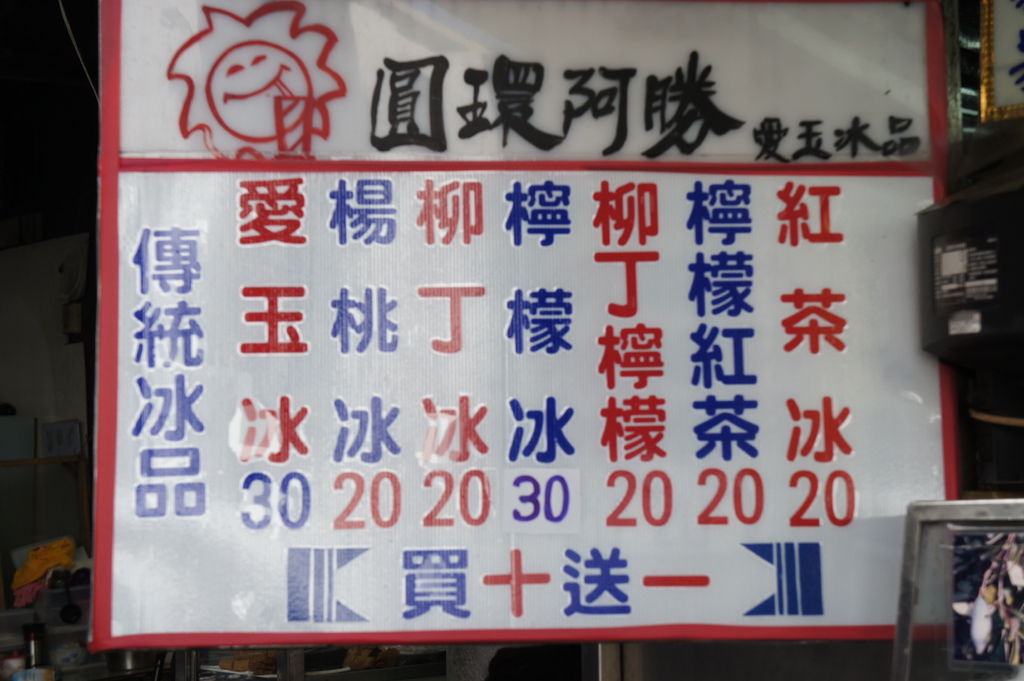 圓環阿勝 愛玉冰品
傳統冰品
愛玉冰 30
楊桃冰 20
柳丁冰 20
檸檬冰 30
柳丁檸檬 20
檸檬紅茶 20
紅茶冰 20
買十送一